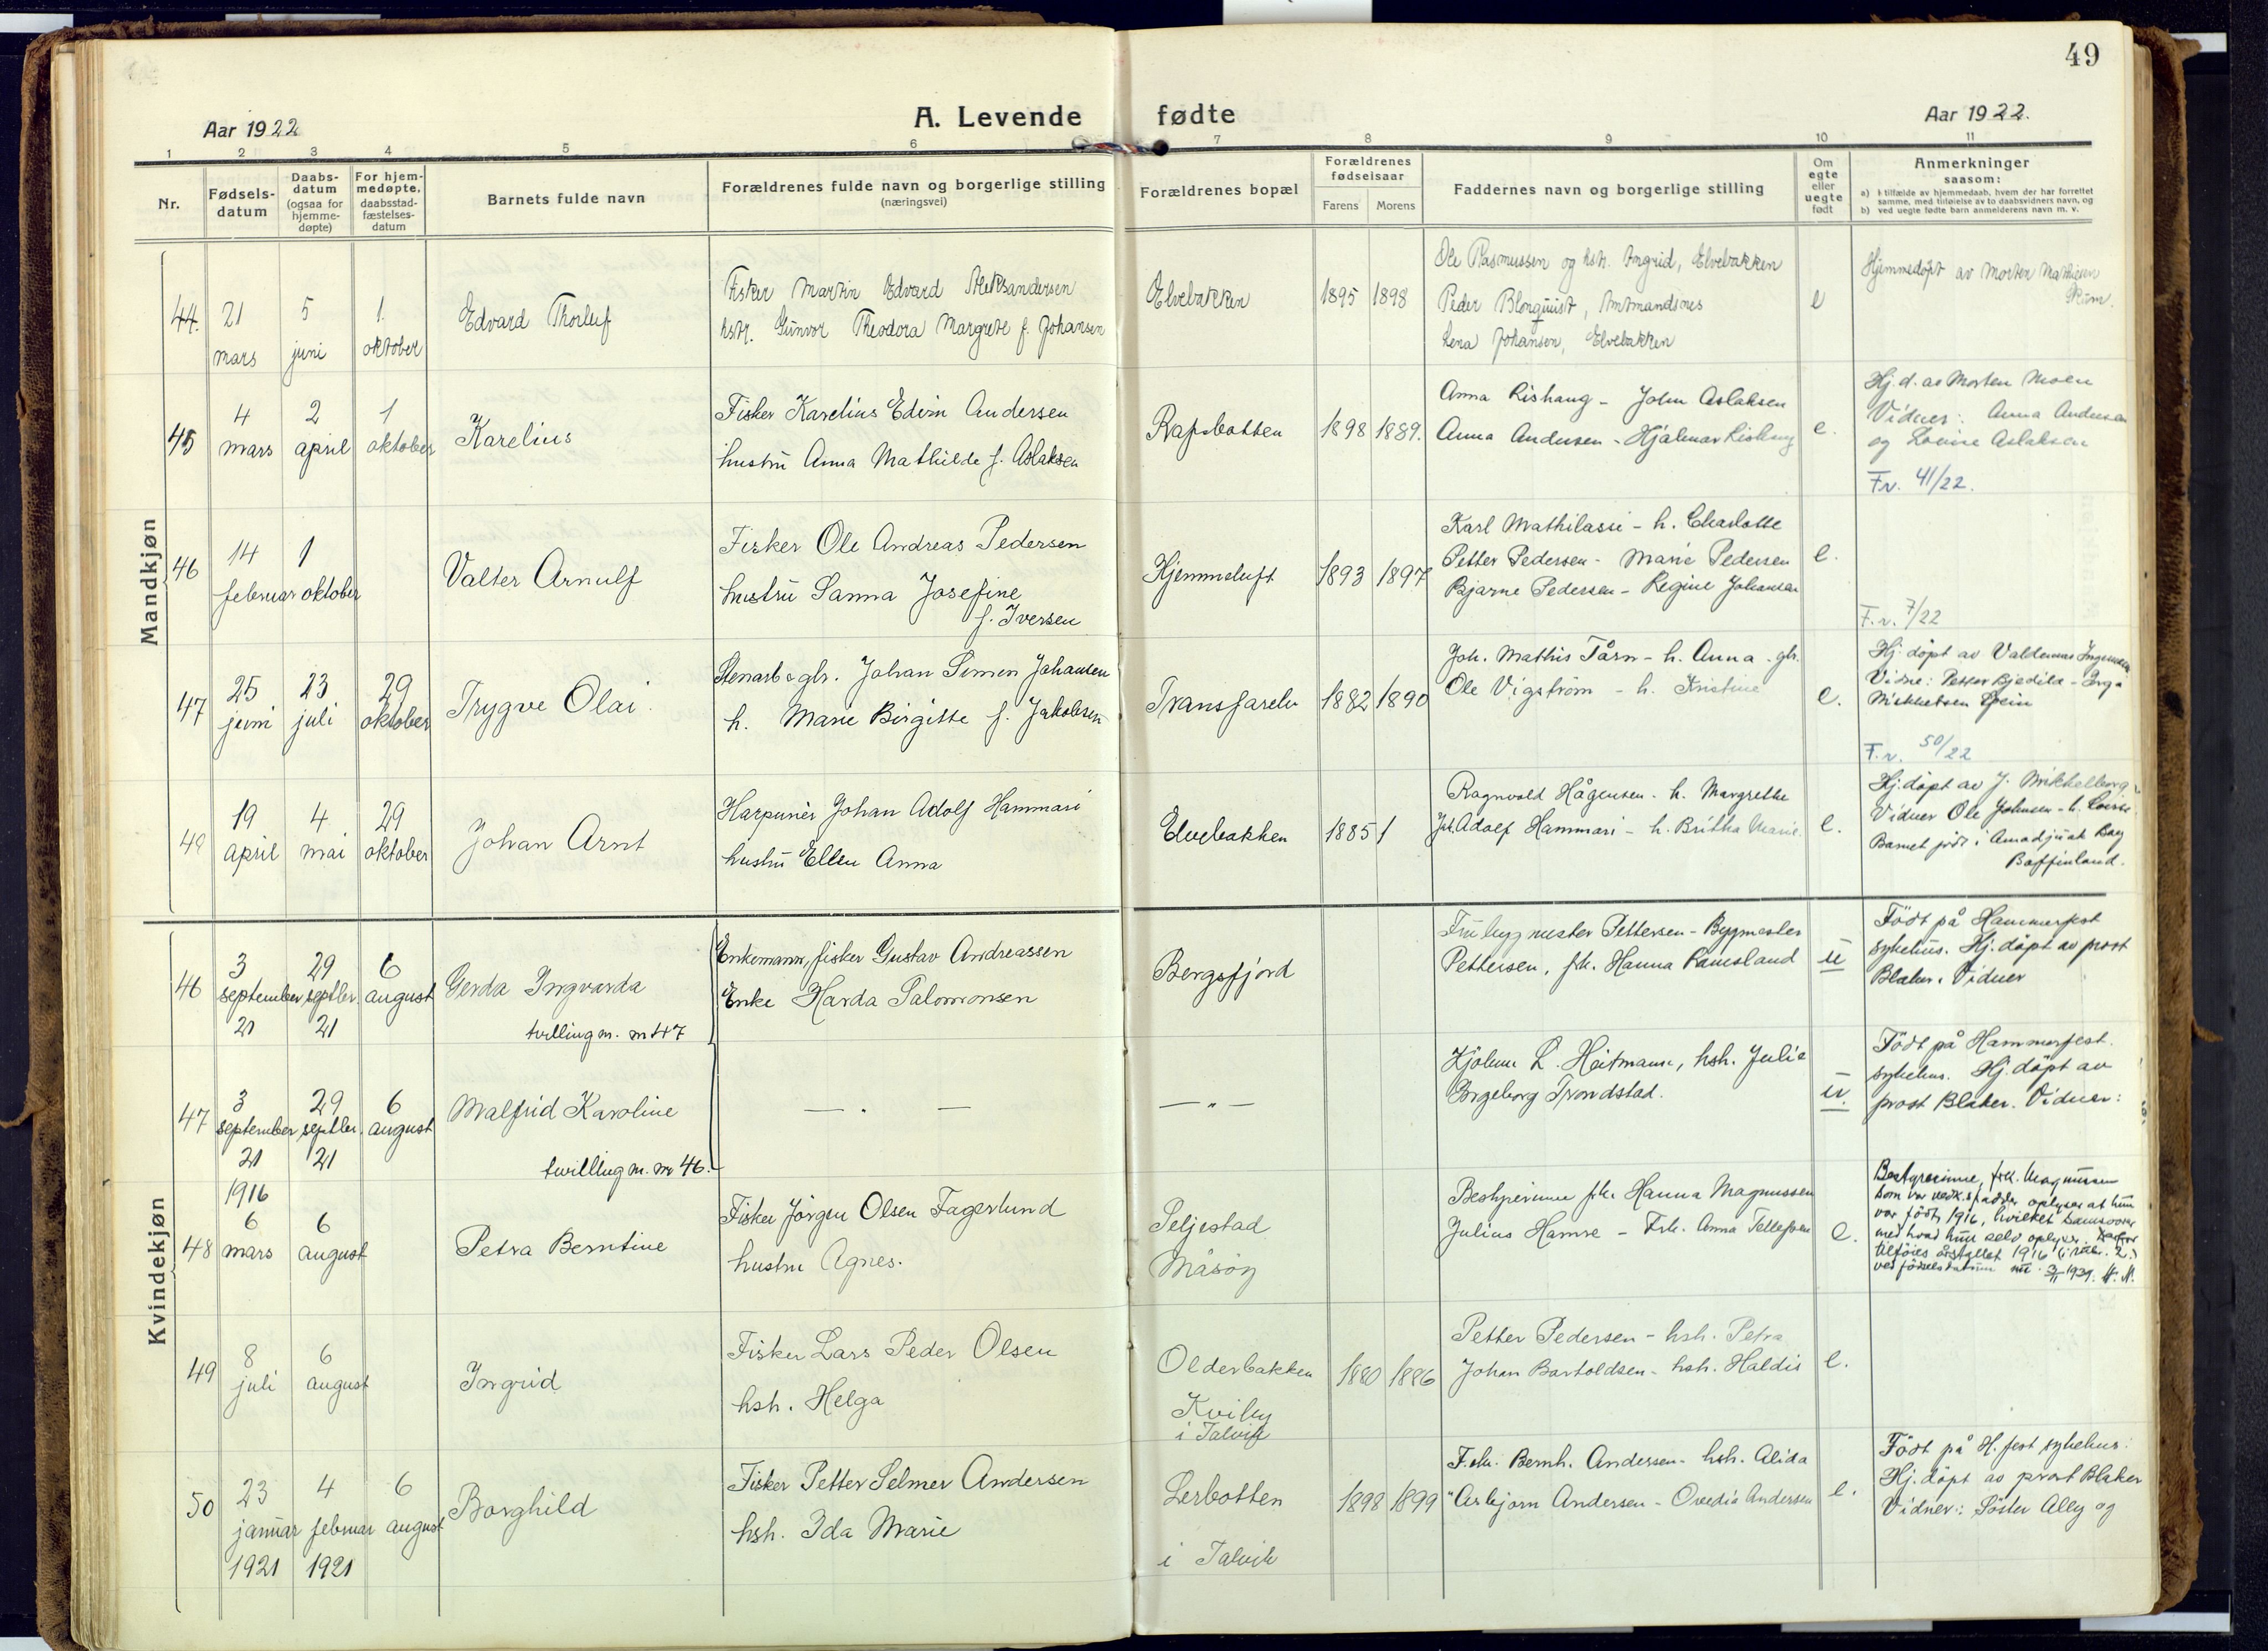 49
Aar 1922
A. Levende fødte
Aar 1922.
1 2 3 4 5 6 7 8 9 10 11
Nr.
Fødsels-
datum
Daabs-
datum
(ogsaa for
hjemme-
døpte)
For hjem-
medøpte,
daabsstad-
fæstelses-
datum
Barnets fulde navn
Forældrenes fulde navn og borgerlige stilling
(næringsvei)
Forældrenes bopæl
Forældrenes
fødselsaar
Farens Morens
Faddernes navn og borgerlige stilling
Om
egte
eller
uegte
født
Anmerkninger
saasom:
a) i tilfælde av hjemmedaab, hvem der har forrettet
samme, med tilføielse av to daabsvidners navn, og
b) ved uegte fødte barn anmelderens navn m. v.
Mandkjøn
44. 21 mars
5 juni
1. oktober
Edvard Thorluf
Fisker Martin Edvard Aleksandersen
hstr. Gunvor Theodora Margrete f. Johansen
Elvebakken
1895 1898
Ole Rasmussen og hstr. Ingrid, Elvebakken
Peder Blomquist, Amtmandsnes
Lena Johansen, Elvebakken
e
Hjemmedøpt av Morten Mathisen
45 4 mars
2 april
1 oktober
Karelius
Fisker Karelius Edvin Andersen
hustru Anna Mathilde f. Aslaksen
Rafsbotten
1898 1889.
Anna Lishaug - John Aslaksen
Anna Andersen - Hjalmar Lishaug
e.
Hj.d. av Morten Moen
Vidner: Anna Andersen
og Lovise Aslaksen
F.v. 41/22.
46 14 februar
1 oktober
Valter Arnulf
Fisker Ole Andreas Pedersen
hustru Sanna Josefine
f. Iversen
Hjemmeluft
1893 1897
Karl Mathilassi - h. Charlotte
Petter Pedersen - Marie Pedersen
Bjarne Pedersen - Regine Johansen
e.
F.v. 7/22
47 25 juni
23 juli
29 oktober
Trygve Olai.
Stenarb & gbr. Johan Simon Johansen
h. Marie Birgitte f. Jakobsen
Transfarelv
1882 1890
Joh. Mathis Tårn - h. Anna. gbr.
Ole Vigström - h. Kristine
e.
Hj. döpt av Valdemar Ingebrigtsen
F.v. 50/22
48 19 april
4 mai
29 oktober
Johan Arnt
Harpunér Johan Adolf Hammari
hustru Ellen Anna
Elvebakken
1885 1
Ragnvald Hågensen - h. Margrethe
Joh. Adolf Hammari - h. Britha Marie.
e.
Hj. döpt av J. Mikkelborg.
Vidner Ole Johnsen - h. Lovise.
Barnet födt i Amadjuak Bay
Baffinland.
Kvindekjøn
46 3 september 21
29 septbr. 21
6 august
Gerda Ingvarda
tvilling m. nr 47
Enkemann, fisker Gustav Andreassen
Enke Harda Salomonsen
Bergsfjord
Fru bygmester Pettersen - Bygmester
Pettersen, frk. Hanna Ramsland
u
Födt på Hammerfest
sykehus. Hj. döpt av prost
Blaker. Vidner
47 3 september 21
29 septbr. 21
6 august
Malfrid Karoline
tvilling m. nr 46.
— „ —
— „ —
Kjöbm L. Heitmann, hsh. Julie
Ingeborg Trondstad.
u.
Födt på Hammerfest.
sykehus. Hj. döpt av
prost Blaker. Vidner:
48 1916
6 mars
6 august
Petra Berntine
Fisker Jörgen Olsen Fagerlund
hustru Agnes.
Seljestad
Måsöy
Bestyrerinne frk. Hanna Magnussen
Julius Hamre - Frk. Anna Tellefsen
e.
Bestyrerinne, frk. Magnussen
som var vedk.s fadder oplyser at hun
var födt 1916, hvilket samsvarer
med hvad hun selv oplyser. Derfor
tilföies årstallet 1916 i rubr. 2
ved födselsdatum
49 8 juli
6 august
Ingrid
Fisker Lars Peder Olsen
hsh. Helga
Olderbakken
Kviby
i Talvik
1880 1886
Petter Pedersen - hsh. Petra
Johan Bartoldsen - hsh. Haldis
e.
50 23 januar 1921
4 februar 1921
6 august
Borghild
Fisker Petter Selmer Andersen
hsh. Ida Marie
Lerbotten
i Talvik
1898 1899
F. Bernh. Andersen - hsh. Alida
" Asbjörn Andersen - Ovedia Andersen
e.
Födt på H.fest sykehus.
Hj. döpt av prost Blaker
Vidner: Söster Ally og